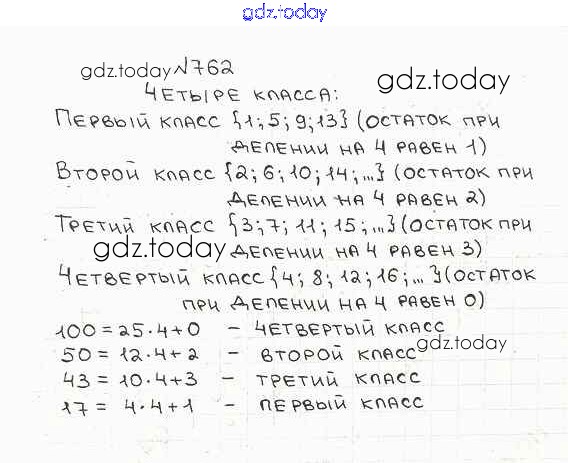 gdz.today
gdz.today №762 gdz.today
ЧЕТЫРЕ КЛАССА:
ПЕРВЫЙ КЛАСС {1; 5; 9; 13} (ОСТАТОК ПРИ
ДЕЛЕНИИ НА 4 РАВЕН 1)
ВТОРОЙ КЛАСС {2; 6; 10; 14; ...} (ОСТАТОК ПРИ
ДЕЛЕНИИ НА 4 РАВЕН 2)
ТРЕТИЙ КЛАСС {3; 7; 11; 15; ...} (ОСТАТОК ПРИ
gdz.today ДЕЛЕНИИ НА 4 РАВЕН 3)
ЧЕТВЕРТЫЙ КЛАСС {4; 8; 12; 16; ...} (ОСТАТОК
ПРИ ДЕЛЕНИИ НА 4 РАВЕН 0)
100 = 25·4+0 – ЧЕТВЕРТЫЙ КЛАСС
50 = 12·4+2 – ВТОРОЙ КЛАСС gdz.today
43 = 10·4+3 – ТРЕТИЙ КЛАСС
17 = 4·4+1 – ПЕРВЫЙ КЛАСС